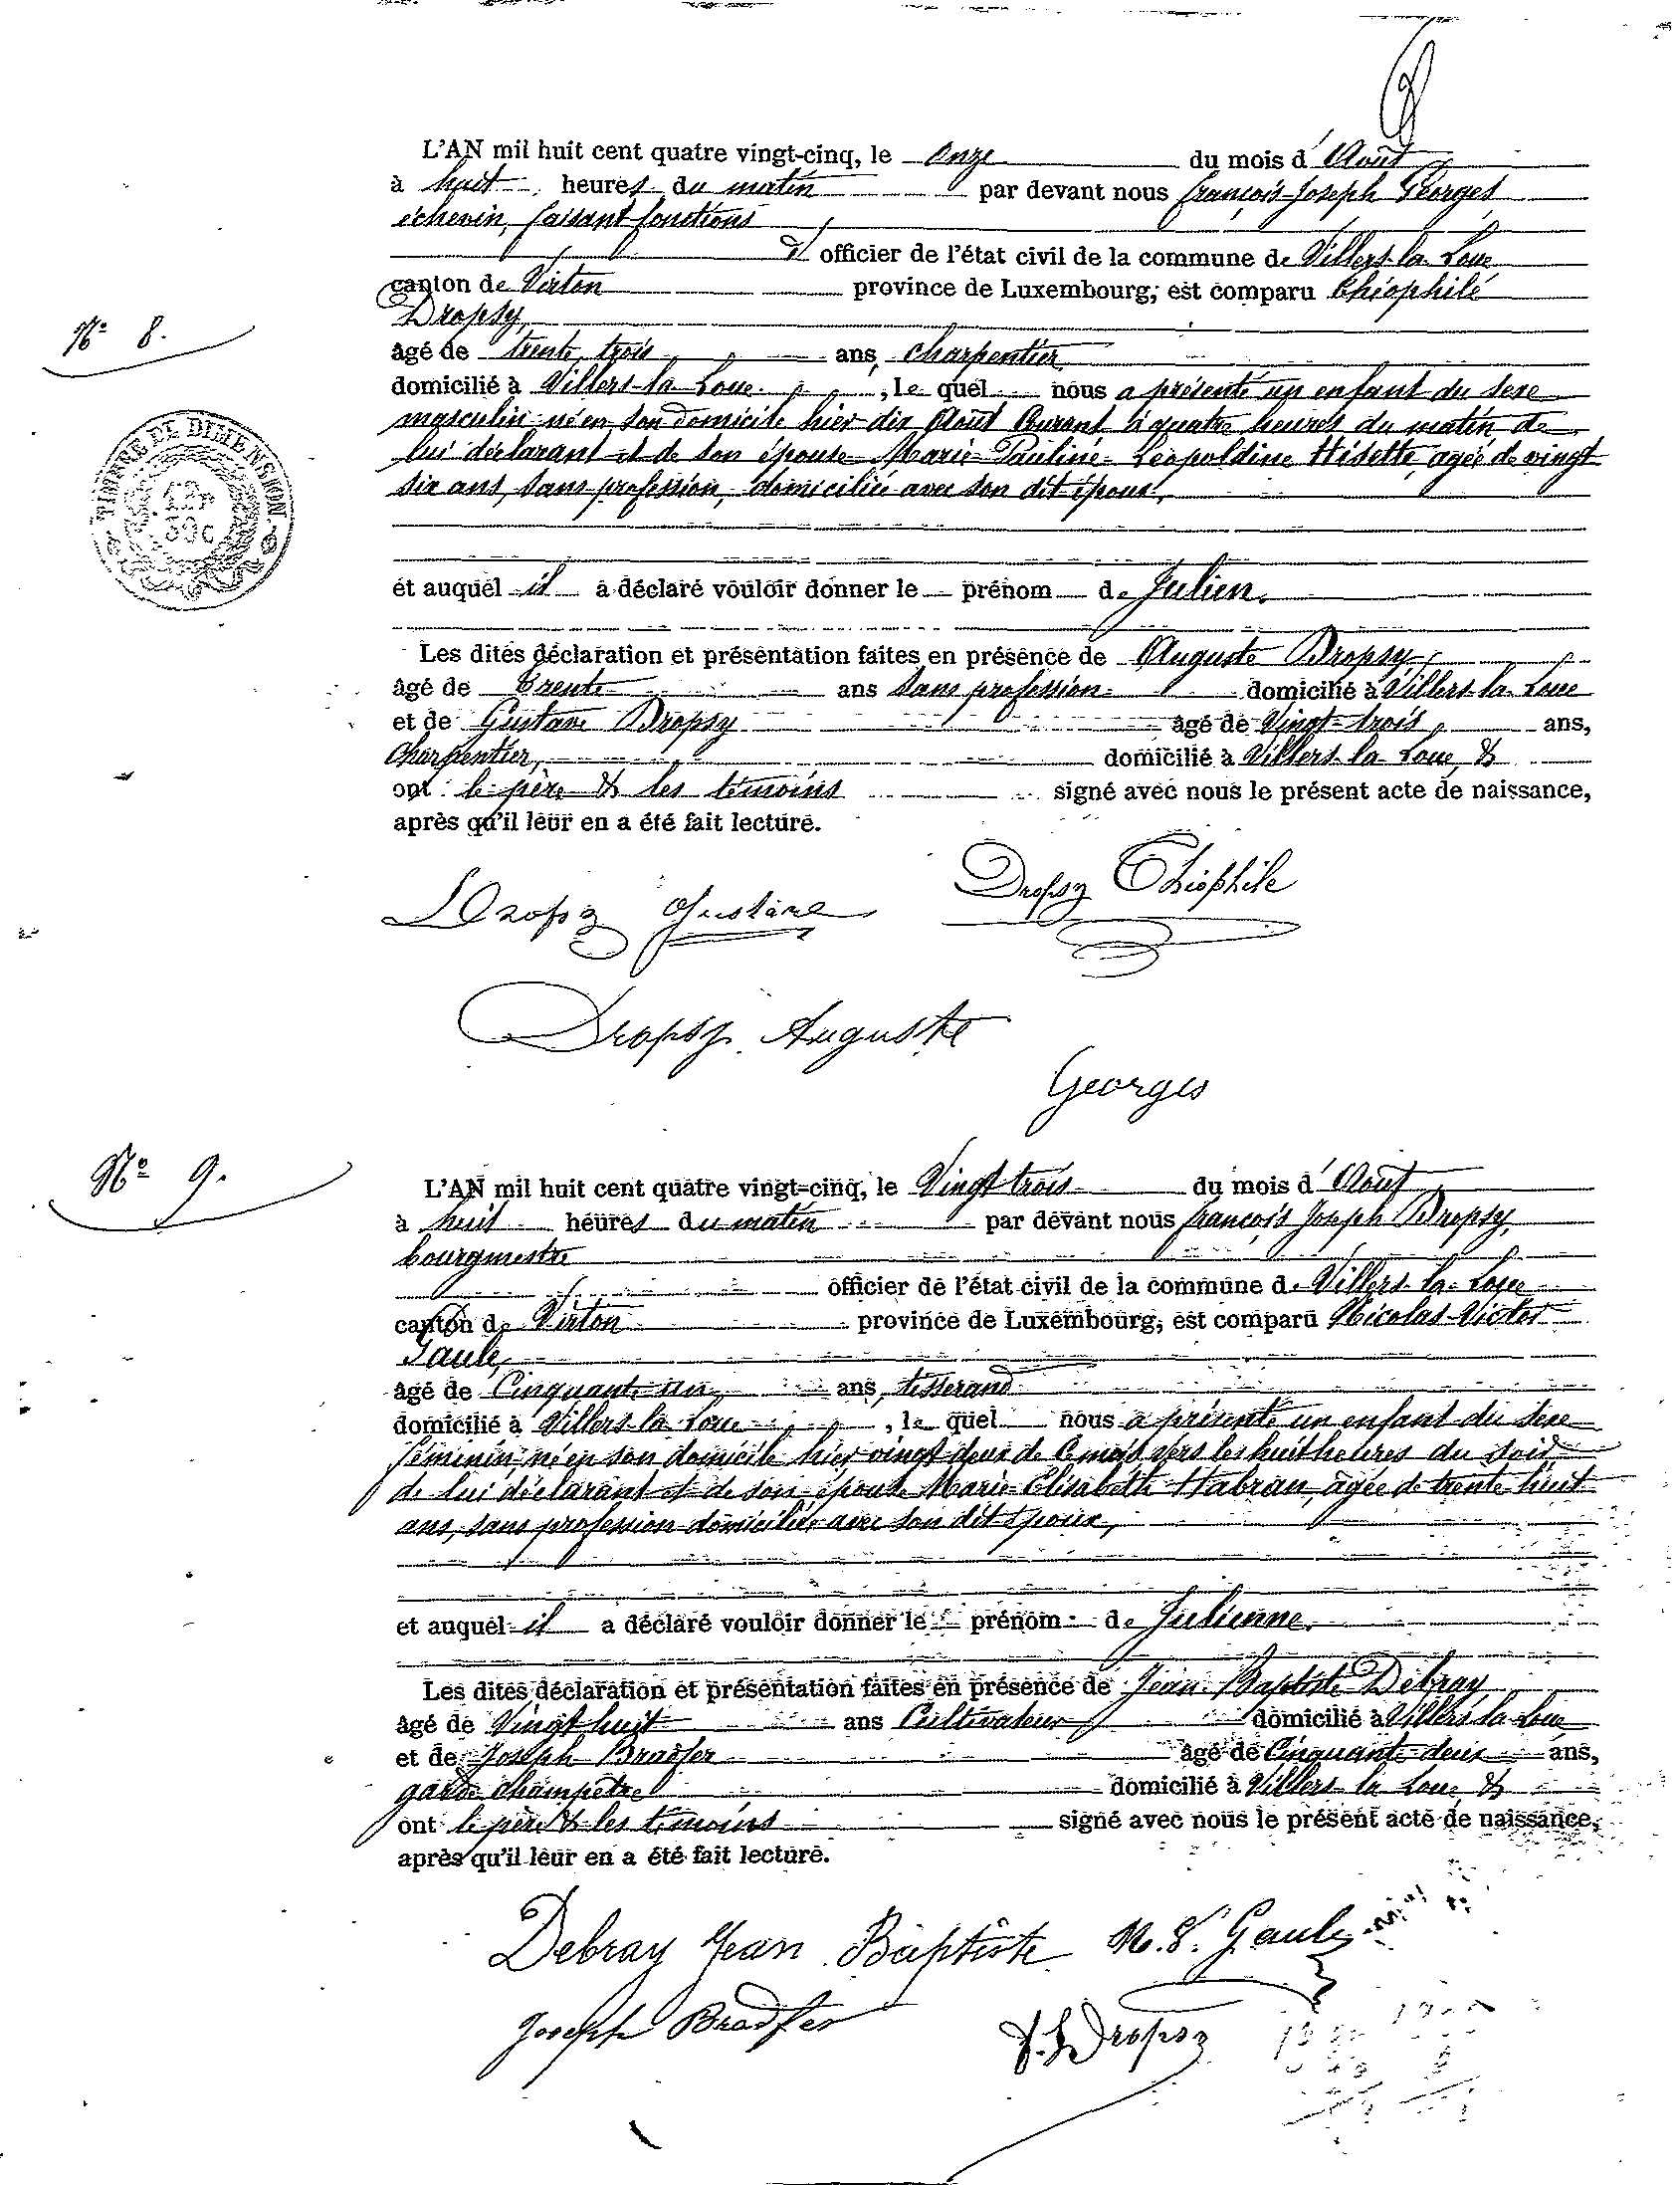 L'AN mil huit cent quatre vingt-cinq, le Onze du mois d'Août
à huit heures du matin par devant nous françois-Joseph Georges
échevin, faisant fonctions
d' officier de l'état civil de la commune de Villers-la-Loue
canton de Virton province de Luxembourg, est comparu Théophile
Dropsy,
N° 8.
âgé de trente trois ans, charpentier
domicilié à Villers-la-Loue, lequel nous a présenté un enfant du sexe
masculin né en son domicile hier dix Août Courant à quatre heures du matin de
lui déclarant et de son épouse Marie-Pauline-Léopoldine Hisette, agée de vingt
six ans, sans profession, domiciliée avec son dit époux,
TIMBRE DE DIMENSION
et auquel il a déclaré vouloir donner le prénom de Julien.
Les dites déclaration et présentation faites en présence de Auguste Dropsy,
âgé de trente ans sans profession domicilié à Villers-la-Loue
et de Gustave Dropsy âgé de Vingt-trois ans,
charpentier, domicilié à Villers-la-Loue, &
ont le père & les témoins signé avec nous le présent acte de naissance,
après qu'il leur en a été fait lecture.
Dropsy Gustave Dropsy Théophile
Dropsy Auguste
Georges
N° 9.
L'AN mil huit cent quatre vingt-cinq, le Vingt trois du mois d'Août
à huit heures du matin par devant nous françois Joseph Dropsy,
bourgmestre
officier de l'état civil de la commune de Villers-la-Loue
canton de Virton province de Luxembourg, est comparu Nicolas-Victor
Gaule,
âgé de Cinquante un ans, tisserand
domicilié à Villers-la-Loue, lequel nous a présenté un enfant du sexe
féminin, né en son domicile hier vingt deux de ce mois vers les huit heures du soir
de lui déclarant et de son épouse Marie Elisabeth Habran, agée de trente huit
ans, sans profession domiciliée avec son dit époux,
et auquel il a déclaré vouloir donner le prénom de Julienne.
Les dites déclaration et présentation faites en présence de Jean-Baptiste Debray
âgé de Vingt huit ans Cultivateur domicilié à Villers la Loue
et de Joseph Bradfer âgé de Cinquante deux ans,
garde champêtre domicilié à Villers la Loue, &
ont le père & les témoins signé avec nous le présent acte de naissance,
après qu'il leur en a été fait lecture.
Debray Jean Baptiste N. V. Gaule
Joseph Bradfer F. J. Dropsy